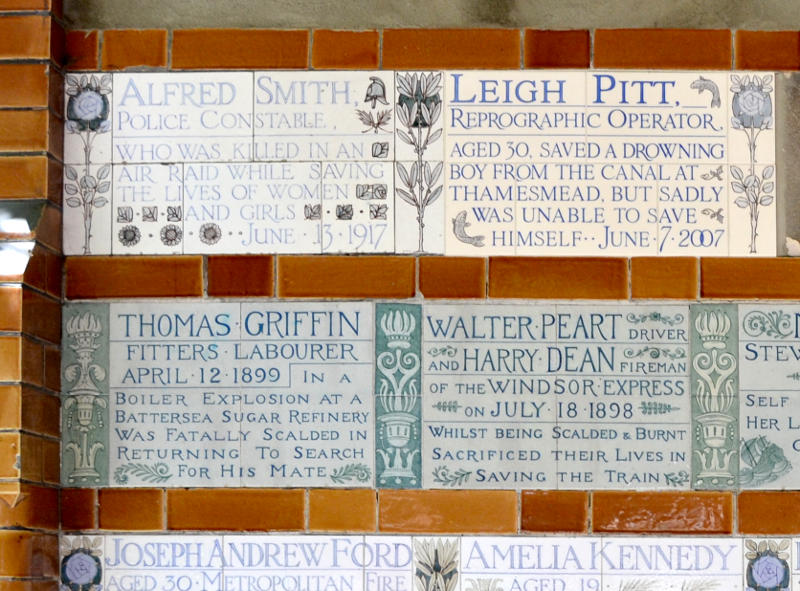 ALFRED SMITH,
POLICE CONSTABLE,
WHO WAS KILLED IN AN
AIR RAID WHILE SAVING
THE LIVES OF WOMEN
AND GIRLS
·· JUNE · 13 · 1917
LEIGH PITT,
REPROGRAPHIC OPERATOR,
AGED 30, SAVED A DROWNING
BOY FROM THE CANAL AT
THAMESMEAD, BUT SADLY
WAS UNABLE TO SAVE
HIMSELF ·· JUNE · 7 · 2007
THOMAS · GRIFFIN
FITTERS · LABOURER
APRIL · 12 · 1899 IN A
BOILER EXPLOSION AT A
BATTERSEA SUGAR REFINERY
WAS FATALLY SCALDED IN
RETURNING TO SEARCH
FOR HIS MATE
WALTER · PEART DRIVER
AND HARRY · DEAN FIREMAN
OF THE WINDSOR EXPRESS
ON JULY · 18 · 1898
WHILST BEING SCALDED & BURNT
SACRIFICED THEIR LIVES IN
SAVING THE TRAIN
STEW
SELF
HER L
JOSEPH ANDREW FORD
AGED 30 · METROPOLITAN FIRE
AMELIA KENNEDY
AGED 19